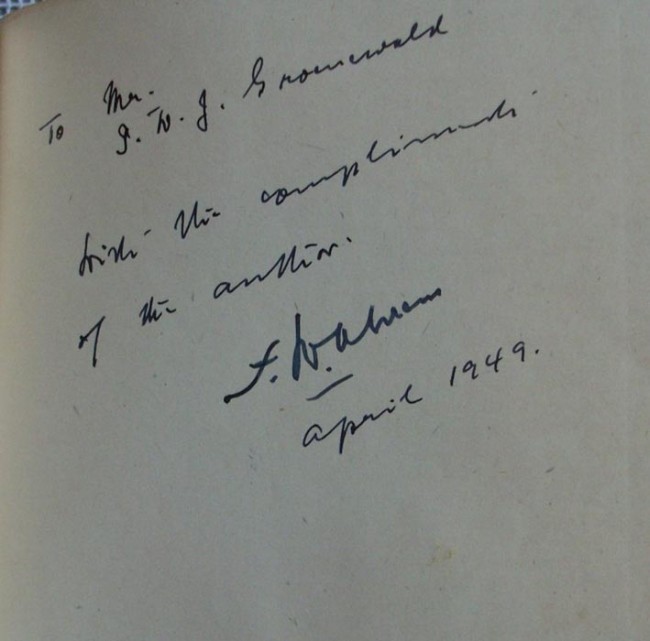 To Mr.
P. W. J. Groenewald
With the compliments
of the author.
F. W. Ahrens
April 1949.